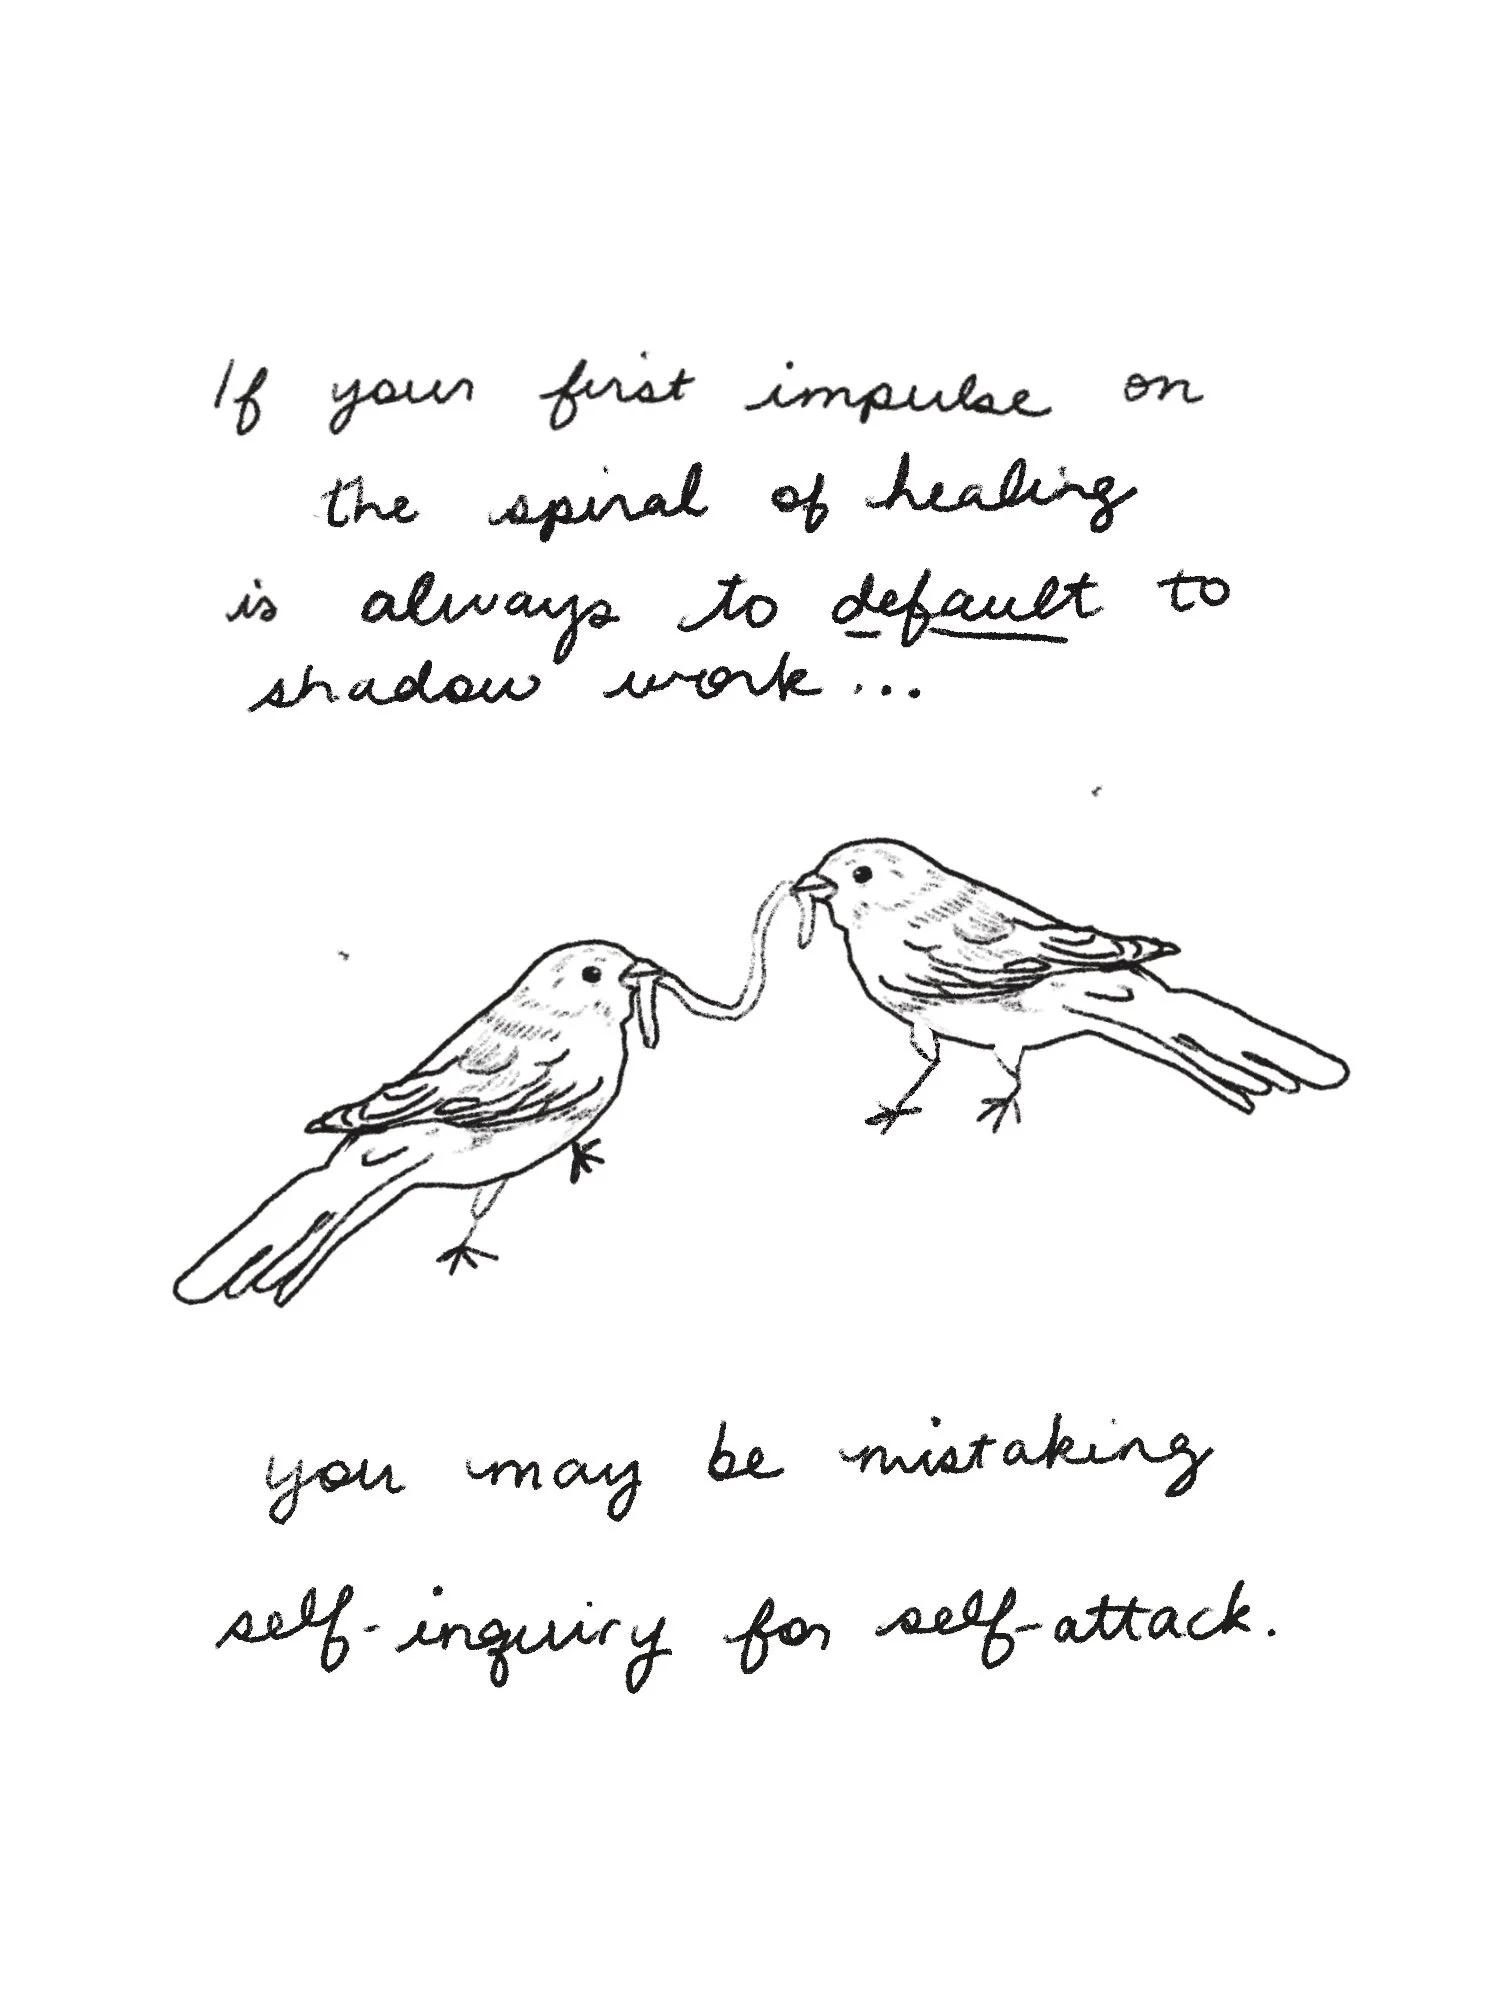 If your first impulse on
the spiral of healing
is always to default to
shadow work...
you may be mistaking
self-inquiry for self-attack.